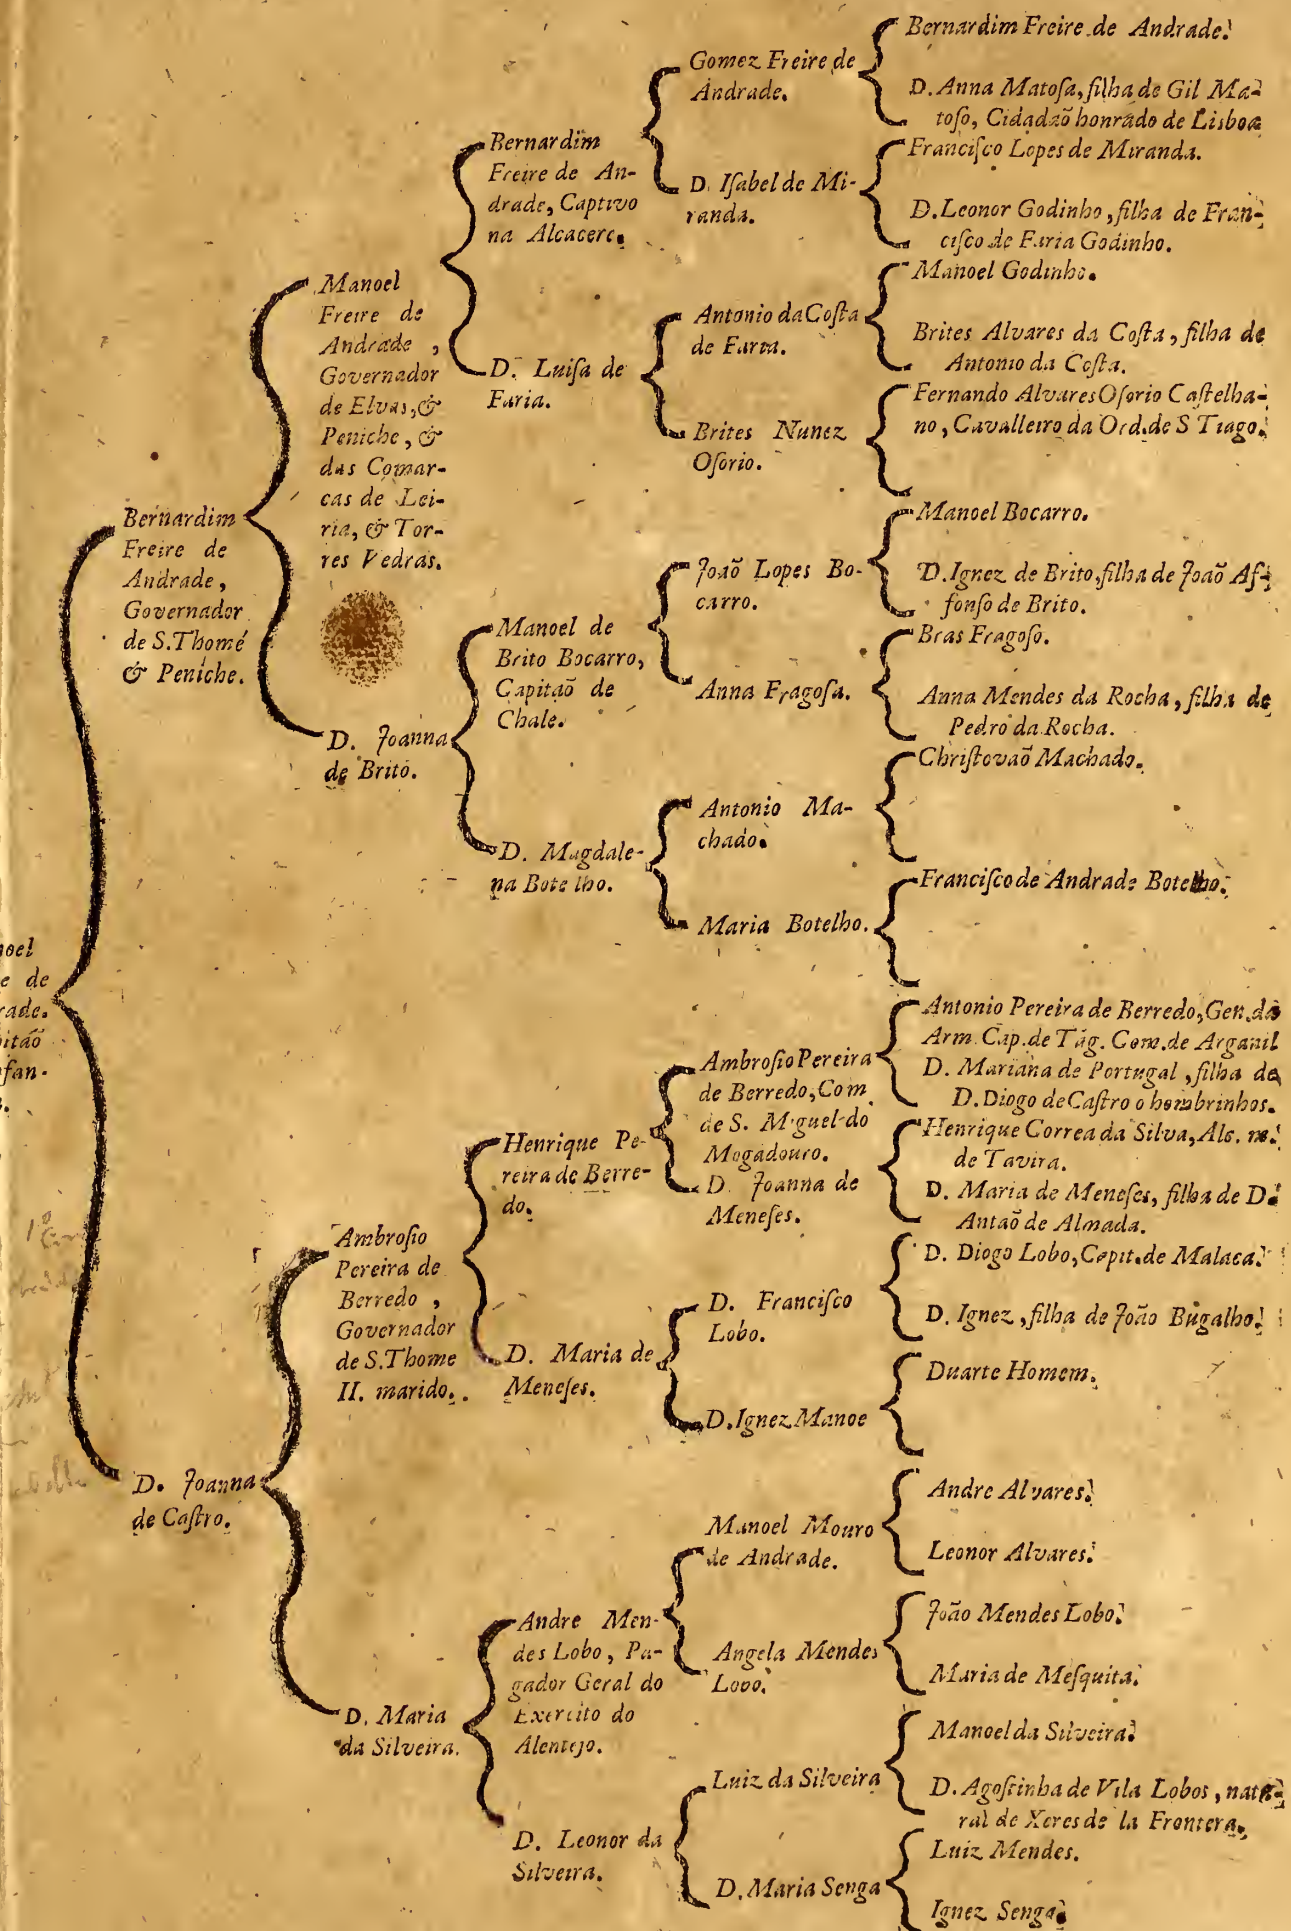 Bernardim
Freire de
Andrade,
Governador
de S.Thomé
& Peniche.
D. Joanna
de Caſtro.
Manoel
Freire de
Andrade ,
Governador
de Elvas,&
Peniche, &
das Comar-
cas de Lei-
ria, & Tor-
res Vedras.
D. Joanna
de Brito.
Ambroſio
Pereira de
Berredo ,
Governador
de S.Thome
II. marido.
D. Maria
da Silveira.
Bernardim
Freire de An-
drade, Captivo
na Alcacere.
D. Luiſa de
Faria.
Manoel de
Brito Bocarro,
Capitaõ de
Chale.
D. Magdale-
na Botelho.
Henrique Pe-
reira de Berre-
do.
D. Maria de
Meneſes.
Andre Men-
des Lobo, Pa-
gador Geral do
Exercito do
Alentejo.
D. Leonor da
Silveira.
Gomez Freire de
Andrade.
D. Iſabel de Mi-
randa.
Antonio da Coſta
de Faria.
Brites Nunez
Oſorio.
Joaõ Lopes Bo-
carro.
Anna Fragoſa.
Antonio Ma-
chado.
Maria Botelho.
Ambroſio Pereira
de Berredo, Com
de S. Miguel do
Mogadouro.
D. Joanna de
Meneſes.
D. Franciſco
Lobo.
D.Ignez Manoe
Manoel Mouro
de Andrade.
Angela Mendes
Lobo.
Luiz da Silveira
D. Maria Senga
Bernardim Freire de Andrade.
D. Anna Matoſa, filha de Gil Ma-
toſo, Cidadaõ honrado de Lisboa
Franciſco Lopes de Miranda.
D.Leonor Godinho, filha de Fran-
ciſco de Faria Godinho.
Manoel Godinho.
Brites Alvares da Coſta, filha de
Antonio da Coſta.
Fernando Alvares Oſorio Caſtelha-
no, Cavalleiro da Ord.de S Tiago.
Manoel Bocarro.
D.Ignez de Brito, filha de Joaõ Af-
fonſo de Brito.
Bras Fragoſo.
Anna Mendes da Rocha, filha de
Pedro da Rocha.
Chriſtovaõ Machado.
Franciſco de Andrade Botelho.
Antonio Pereira de Berredo, Gen.da
Arm Cap.de Tãg. Com.de Arganil
D. Mariana de Portugal, filha de
D.Diogo de Caſtro o hombrinhos.
Henrique Correa da Silva, Alc. m.
de Tavira.
D. Maria de Meneſes, filha de D.
Antaõ de Almada.
D. Diogo Lobo, Capit.de Malaca.
D. Ignez, filha de João Bugalho.
Duarte Homem.
Andre Alvares.
Leonor Alvares.
João Mendes Lobo.
Maria de Meſquita.
Manoel da Silveira.
D. Agoſtinha de Vila Lobos, natu-
ral de Xeres de la Frontera.
Luiz Mendes.
Ignez Senga.